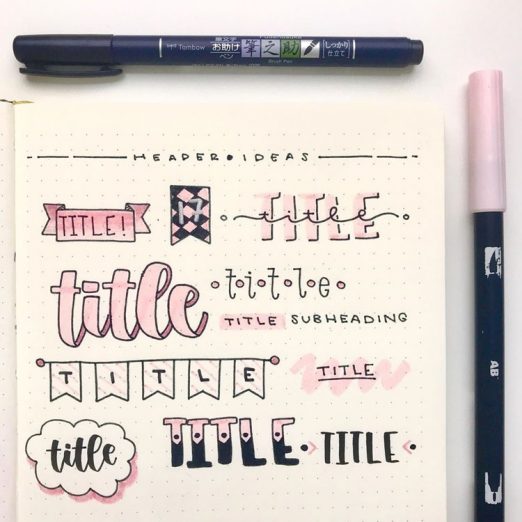 Tombow 筆文字 お助け ペン 筆之助 しっかり 仕立て
Brush Pen
HEADER • IDEAS
TITLE!
17
TITLE
title
title
title
TITLE SUBHEADING
TITLE
TITLE
title
TITLE
TITLE
AB